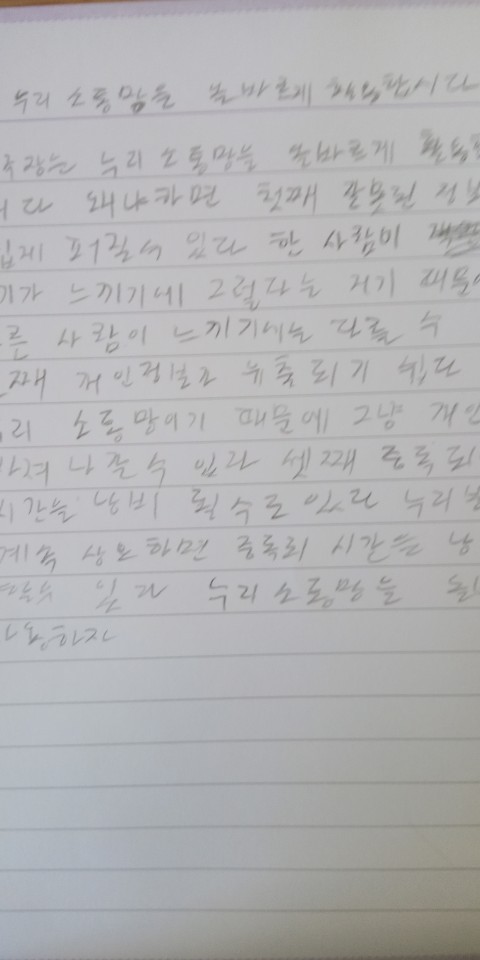 누리 소통망을 올바르게 활용합시다
누리 소통망을 올바르게
왜냐하면 첫째 잘못된 정보
퍼질수 있다 한 사람이
느끼기에 그렇다는 거기 때문에
른 사람이 느끼기에는 다를 수
째 개인정보가 유출되기 쉽다
리 소통망이기 때문에 그냥 개인
나갈수 있다 셋째 중독되
시간을 낭비 될 수도 있다 누리
계속 상요하면 중독되 시간을 낭
있다 누리소통망을
용하자